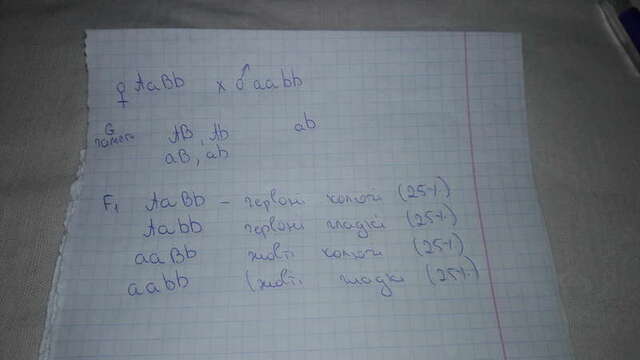 ♀ AaBb x ♂ aabb
G AB, Ab ab
гамети aB, ab
F₁ AaBb – червоні колючі (25%)
Aabb червоні гладкі (25%)
aaBb жовті колючі (25%)
aabb (жовті гладкі (25%)